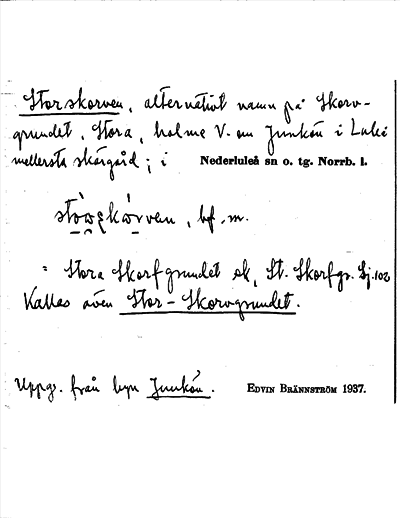 Storskorven, alternativt namn på Skorv-
grundet, Stora, holme V. om Junkön i Luleå
mellersta skärgård; i Nederluleå sn o. tg. Norrb. l.
, bf. m.
= Stora Skorfgrundet ek, St. Skorfgr. Sj. 102
Kallas även Stor-Skorvgrundet.
Uppg. från byn Junkön. EDVIN BRÄNNSTRÖM 1937.